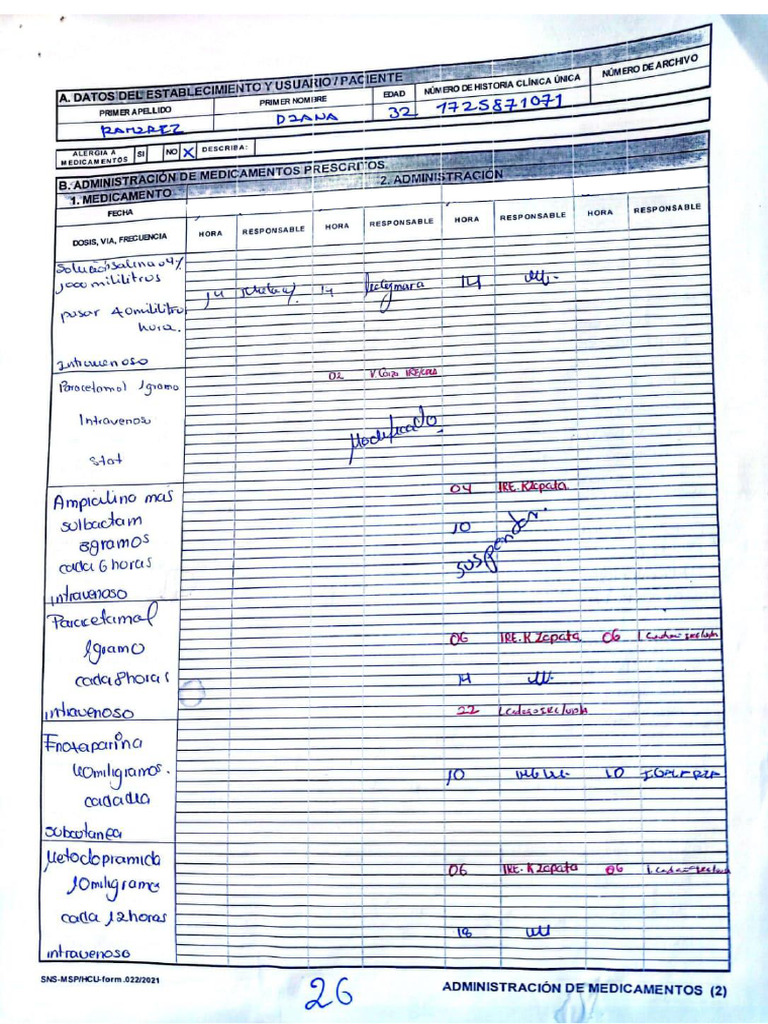 A. DATOS DEL ESTABLECIMIENTO Y USUARIO / PACIENTE
PRIMER APELLIDO PRIMER NOMBRE EDAD NÚMERO DE HISTORIA CLÍNICA ÚNICA NÚMERO DE ARCHIVO
RAMIREZ DIANA 32 1725871071
ALERGIA A MEDICAMENTOS SI NO X DESCRIBA:
B. ADMINISTRACIÓN DE MEDICAMENTOS PRESCRITOS
1. MEDICAMENTO 2. ADMINISTRACIÓN
FECHA
DOSIS, VIA, FRECUENCIA HORA RESPONSABLE HORA RESPONSABLE HORA RESPONSABLE HORA RESPONSABLE
1000 mililitros
14 14 14
pasar 40 mililitros
hora.
Intravenoso
02
Paracetamol 1gramo
Intravenos
Modificado
stat
04 IRE. K Zapata
Ampicilino mas
sulbactam
10
3gramos
suspender.
cada 6 horas
intravenoso
Paracetamol
06 IRE. K Zapata 06
1gramo
cada 8horas 14
intravenoso 22
Enoxaparina
40miligramos. 10 10
cada dia
subcutanea
Metoclopramida
06 IRE. K Zapata 06
10miligramo
cada 12horas
18
intravenoso
SNS-MSP/HCU-form.022/2021
26
ADMINISTRACIÓN DE MEDICAMENTOS (2)